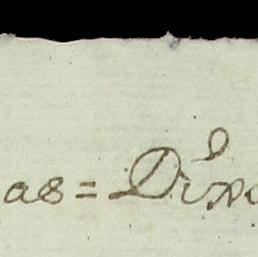 as = Dixo